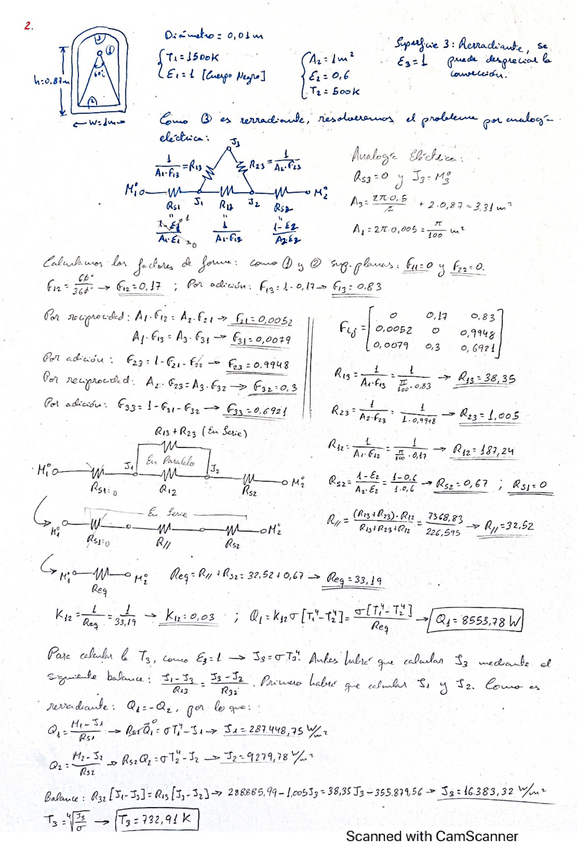 2.
Diámetro = 0,01m
T1 = 1500K
E1 = 1 [Cuerpo Negro]
A2 = 1m²
E2 = 0,6
T2 = 500K
Superficie 3: Rerradiante, se
E3 = 1 puede despreciar la
convección.
h=0.87m
60°
W=1m
Como ③ es rerradiante, resolveremos el problema por analogía
eléctrica:
J3
1/(A1·F13) = R13
R23 = 1/(A2·F23)
M1° J1 J2 M2°
RS1 R12 RS2
(1-E1)/(A1·E1) → 0
1/(A1·F12)
(1-E2)/(A2E2)
Analogía Eléctrica:
RS3=0 y J3=M3°
A3 = 2π·0,5/2 + 2·0,87 = 3.31 m²
A1 = 2π·0,005 = π/100 m²
Calculamos los factores de forma: como ① y ② sup. planas: F11=0 y F22=0.
F12 = 60°/360° → F12=0,17 ; Por adición: F13=1-0,17 → F13=0.83
Por reciprocidad: A1·F12 = A2·F21 → F21=0,0052
A1·F13 = A3·F31 → F31=0,0079
Por adición: F23=1-F21-F22 → F23=0,9948
Por reciprocidad: A2·F23=A3·F32 → F32=0,3
Por adición: F33=1-F31-F32 → F33=0,6921
Fij = [0 0,17 0,83
0,0052 0 0,9948
0,0079 0,3 0,6921]
R13 = 1/(A1·F13) = 1/(π/100·0,83) → R13=38,35
R23 = 1/(A2·F23) = 1/(1·0,9948) → R23=1,005
R12 = 1/(A1·F12) = 1/(π/100·0,17) → R12=187,24
RS2 = (1-E2)/(A2·E2) = (1-0,6)/(1·0,6) → RS2=0,67 ; RS1=0
R// = (R13+R23)·R12/(R13+R23+R12) = 7368,83/226,595 → R//=32,52
R13+R23 (En Serie)
M1° J1 En Paralelo J2 M2°
RS1=0 R12 RS2
En Serie
M1° M2°
RS1=0 R// RS2
M1° M2° Req = R//+RS2 = 32,52+0,67 → Req=33,19
Req
K12 = 1/Req = 1/33,19 → K12=0,03 ; Q1=K12σ[T1⁴-T2⁴] = σ[T1⁴-T2⁴]/Req → Q1=8553,78 W
Para calcular la T3, como E3=1 → J3=σT3⁴. Antes habrá que calcular J3 mediante el
siguiente balance: (J1-J3)/R13 = (J3-J2)/R32. Primero habrá que calcular J1 y J2. Como es
rerradiante: Q1=-Q2, por lo que:
Q1 = (M1-J1)/RS1 → RS1·Q1 = σT1⁴-J1 → J1=287.448,75 W/m²
Q2 = (M2-J2)/RS2 → RS2Q2 = σT2⁴-J2 → J2=9279,78 W/m²
Balance: R32[J1-J3]=R13[J3-J2] → 288.885,99-1,005J3=38,35J3-355.879,56 → J3=16.383,32 W/m²
T3 = ⁴√(J3/σ) → T3=732,91 K
Scanned with CamScanner